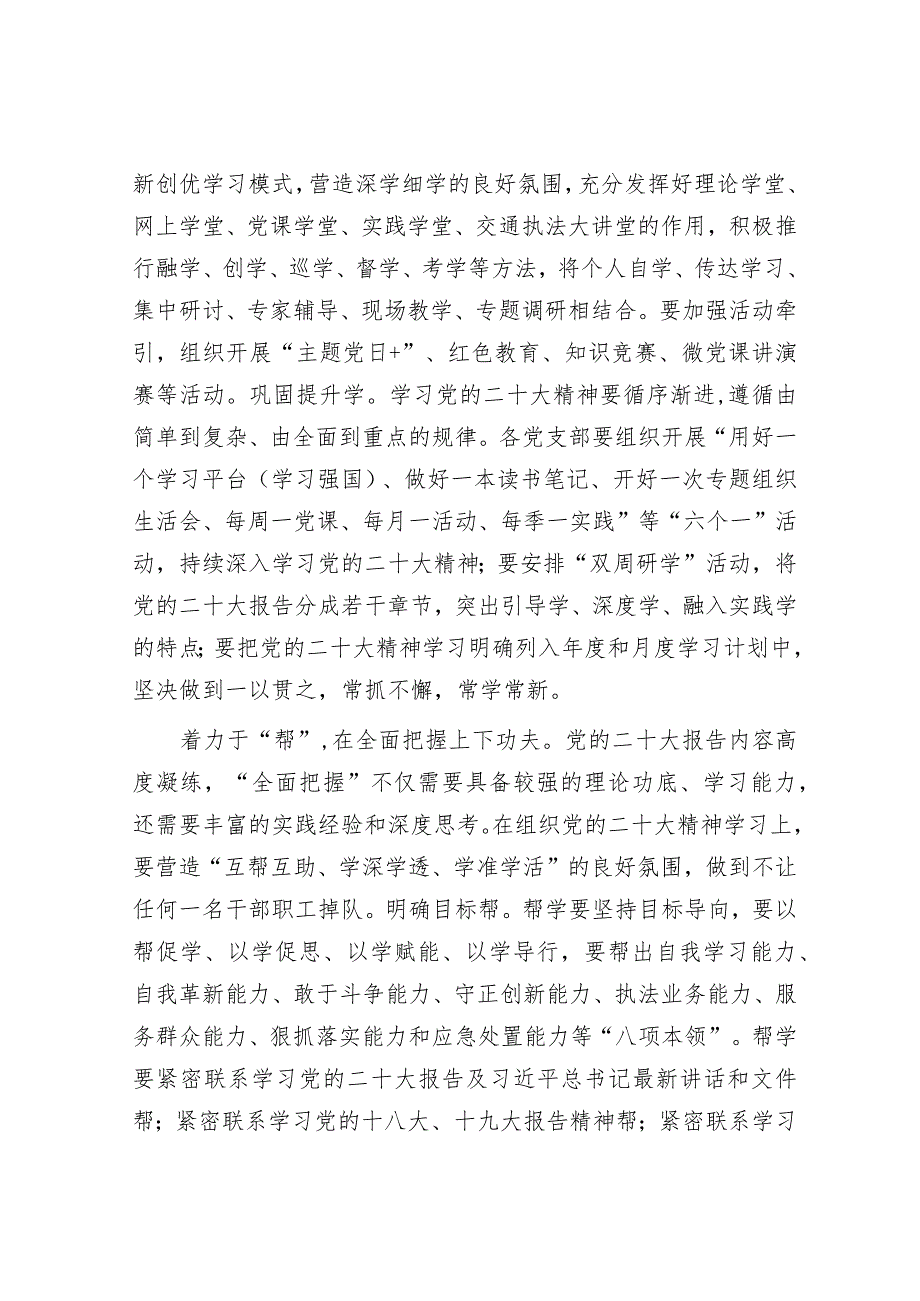 新创优学习模式，营造深学细学的良好氛围，充分发挥好理论学堂、
网上学堂、党课学堂、实践学堂、交通执法大讲堂的作用，积极推
行融学、创学、巡学、督学、考学等方法，将个人自学、传达学习、
集中研讨、专家辅导、现场教学、专题调研相结合。要加强活动牵
引，组织开展“主题党日+”、红色教育、知识竞赛、微党课讲演
赛等活动。巩固提升学。学习党的二十大精神要循序渐进,遵循由
简单到复杂、由全面到重点的规律。各党支部要组织开展“用好一
个学习平台（学习强国）、做好一本读书笔记、开好一次专题组织
生活会、每周一党课、每月一活动、每季一实践”等“六个一”活
动，持续深入学习党的二十大精神；要安排“双周研学”活动，将
党的二十大报告分成若干章节，突出引导学、深度学、融入实践学
的特点；要把党的二十大精神学习明确列入年度和月度学习计划中，
坚决做到一以贯之，常抓不懈，常学常新。
着力于“帮”,在全面把握上下功夫。党的二十大报告内容高
度凝练，“全面把握”不仅需要具备较强的理论功底、学习能力，
还需要丰富的实践经验和深度思考。在组织党的二十大精神学习上，
要营造“互帮互助、学深学透、学准学活”的良好氛围，做到不让
任何一名干部职工掉队。明确目标帮。帮学要坚持目标导向，要以
帮促学、以学促思、以学赋能、以学导行，要帮出自我学习能力、
自我革新能力、敢于斗争能力、守正创新能力、执法业务能力、服
务群众能力、狠抓落实能力和应急处置能力等“八项本领”。帮学
要紧密联系学习党的二十大报告及习近平总书记最新讲话和文件
帮；紧密联系学习党的十八大、十九大报告精神帮；紧密联系学习